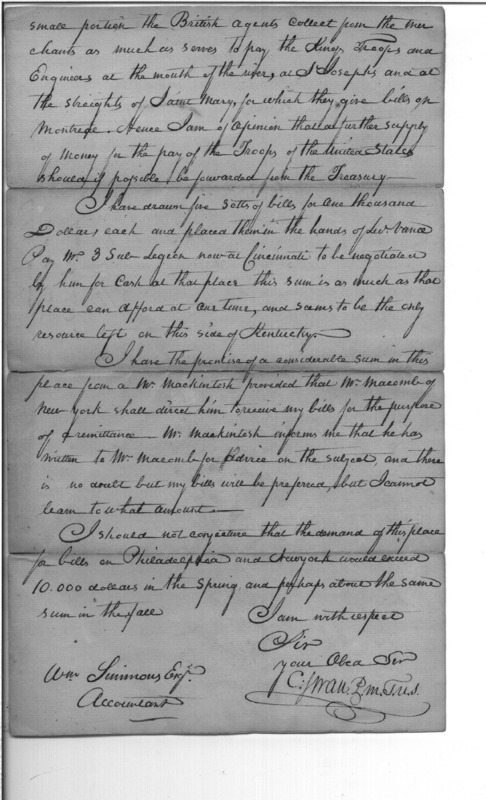 small portion the British agents collect from the mer
chants as much as serves to pay the Kings Troops and
Engineers at the mouth of the river, at S Josephs and at
the streights of Saint Mary, for which they give bills on
Montreal. Hence I am of opinion that a further supply
of money for the pay of the Troops of the United States
should if possible be forwarded from the Treasury
I have drawn five Setts of bills for one thousand
Dollars each and placed them in the hands of Lieu Vance
Pay Mr 3 Sub Legion now at Cincinnati to be negotiated
by him for Cash at that place this sum is as much as that
place can afford at one time, and seems to be the only
resource left on this side of Kentucky
I have the promise of a considerable sum in this
place from a Mr Mackintosh provided that Mr Macomb of
New York shall direct him to receive my bills for the purpose
of remittance. Mr Mackintosh informs me that he has
written to Mr Macomb for advice on the subject, and there
is no doubt but my bills will be preferred, but I cannot
learn to what amount
I should not conjecture that the demand of this place
for bills on Philadelphia and New york would exceed
10.000 dollars in the Spring and perhaps about the same
sum in the fall
I am with respect
Sir
your Obed Ser
C: Swan, P.m.T.U.S.
Wm Simmons Esqr.
Accountant